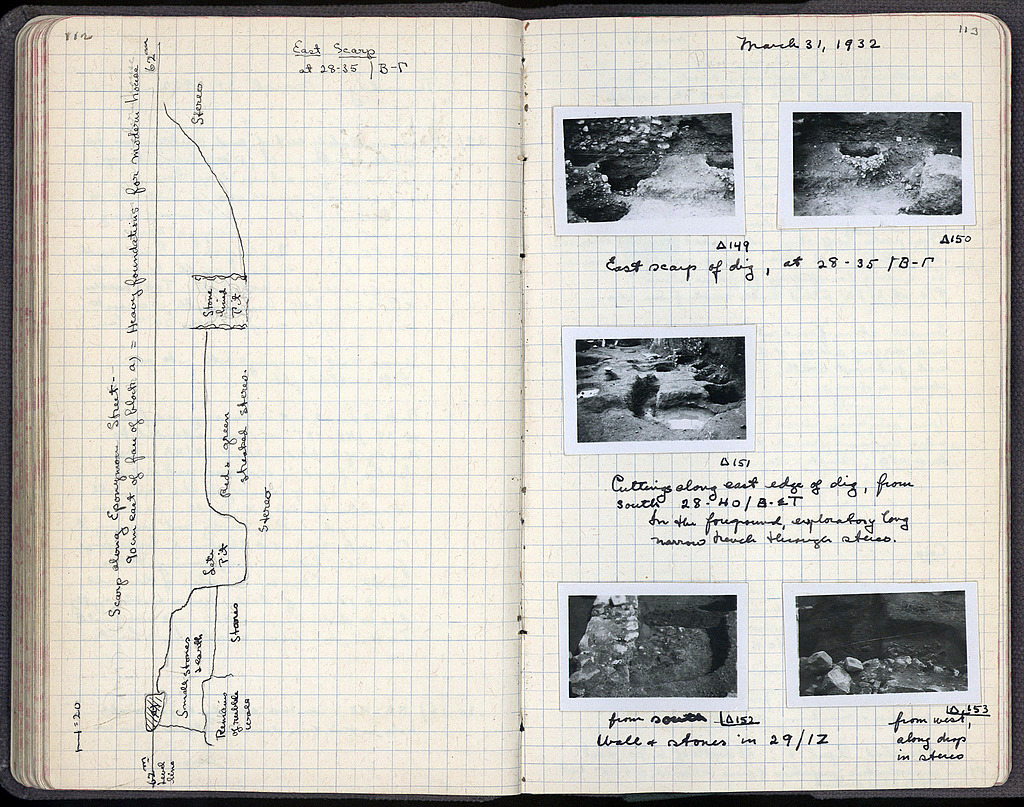 112
East Scarp
at 28-35 / Β-Γ
Scarp along Eponymon Street -
90 cm east of face of block a) = Heavy foundations for modern house
62 m
Stereo
Stone
lined
Pit
Red & green
streaked stereo.
Stereo
Late
Pit
Small stones
& earth
Stones
Remains
of rubble
wall
1=20
62 m
level
line
113
March 31, 1932
Δ149
Δ150
East scarp of dig, at 28-35 / Β-Γ
Δ151
Cuttings along east edge of dig, from
south 28-40 / Β-ΣΤ
In the foreground, exploratory long
narrow trench through stereo.
from south Δ152
Wall & stones in 29/ΙΖ
Δ153
from west,
along drop
in stereo